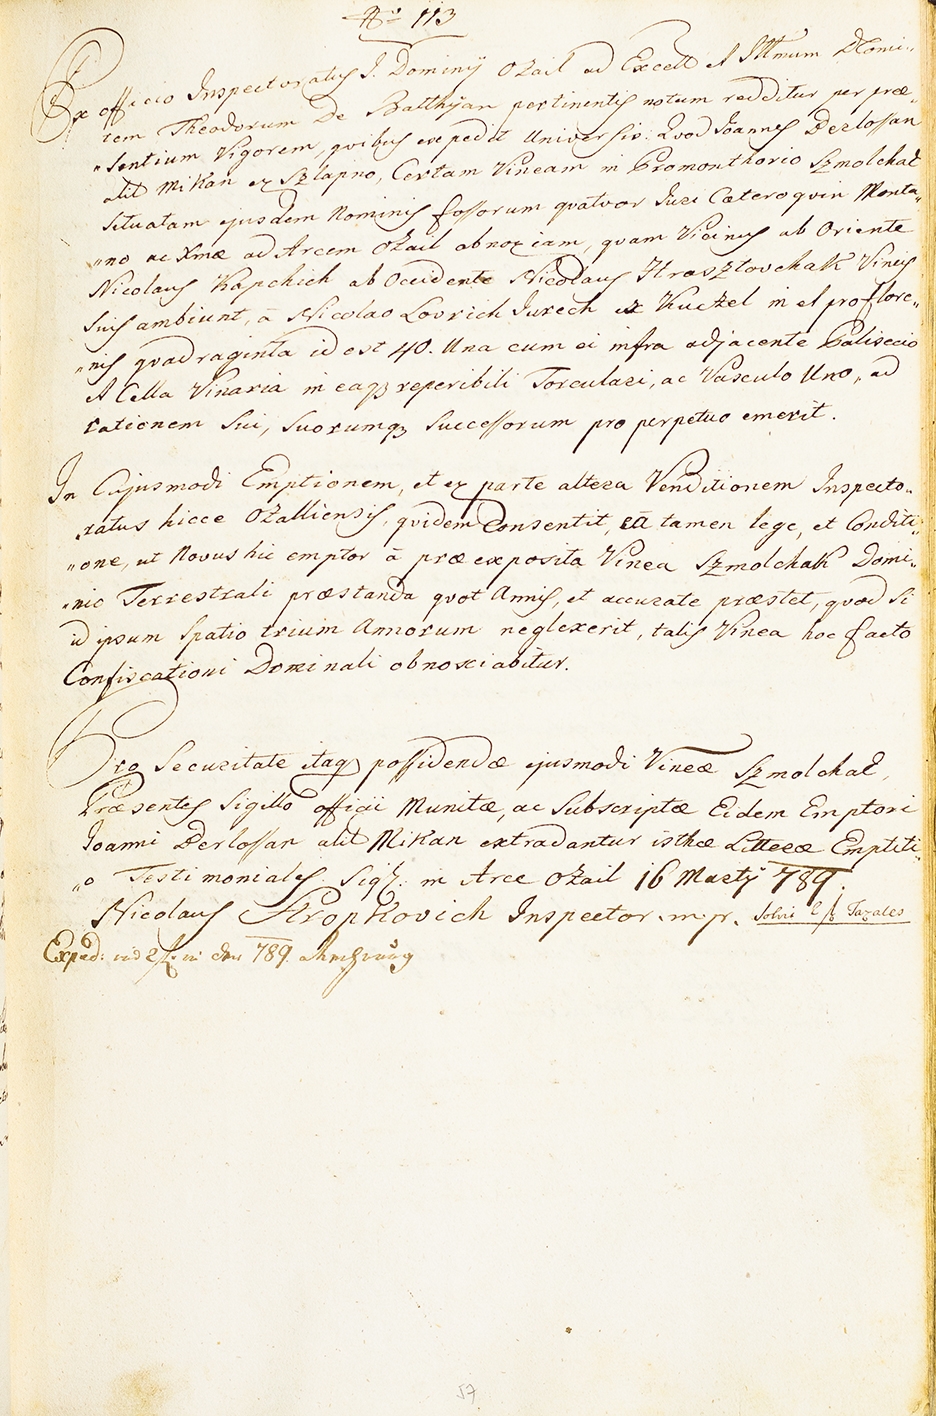 Nro 113
Ex officio Inspectoratus I. Dominij Ozail ad Excell et Illmum D Comi„
tem Theodorum De Batthÿan pertinentis notum redditur per præ„
„sentium Vigorem, quibus expedit Universis: Quod Joannes Derlossan
alit Mikan ex Szlapno, Certam Vineam in Promonthorio Szmolchak
situatam ejusdem Nominis fossorum quatuor Iuri Cæteroquin Monta„
„no ac Xmæ ad Arcem Ozail obnoxiam, quam Vicinus ab Oriente
Nicolaus Kapchich ab Occidente Nicolaus Hrasztovchak Vineis
suis ambiunt, â Nicolao Lovrich Jurech ex Kuczel in et pro flore„
„nis quadraginta id est 40. Una cum ei infra adjacente Paliscio
A Cella Vinaria in eaq reperibili Torculari, ac Vasculo Uno, ad
rationem sui, suorumq successorum pro perpetuo emerit.
In Cujusmodi Emptionem, et ex parte altera Venditionem Inspecto„
„ratus hicce Ozalliensis, quidem Consentit, eâ tamen lege, et Conditi„
„one, ut Novus hic emptor â præexposita Vinea Szmolchak Domi„
„nio Terrestrali præstanda quot Annis, et accurate præstet, quod si
id ipsum spatio trium Annorum neglexerit, talis Vinea hoc facto
Confiscationi Dominali obnoxiabitur.
Pro Securitate itaq possidendæ ejusmodi Vineæ Szmolchak,
Præsentes Sigillo officii Munitæ, ac Subscriptæ Eidem Emptori
Joanni Derlossan alit Mikan extradantur isthæ Litteræ Emptiti„
„o Testimoniales. Sig. in Arce Ozail 16 Martÿ 789.
Nicolaus Kropkovich Inspector. m. pr. Solvit Taxales
Exped: 789.
57